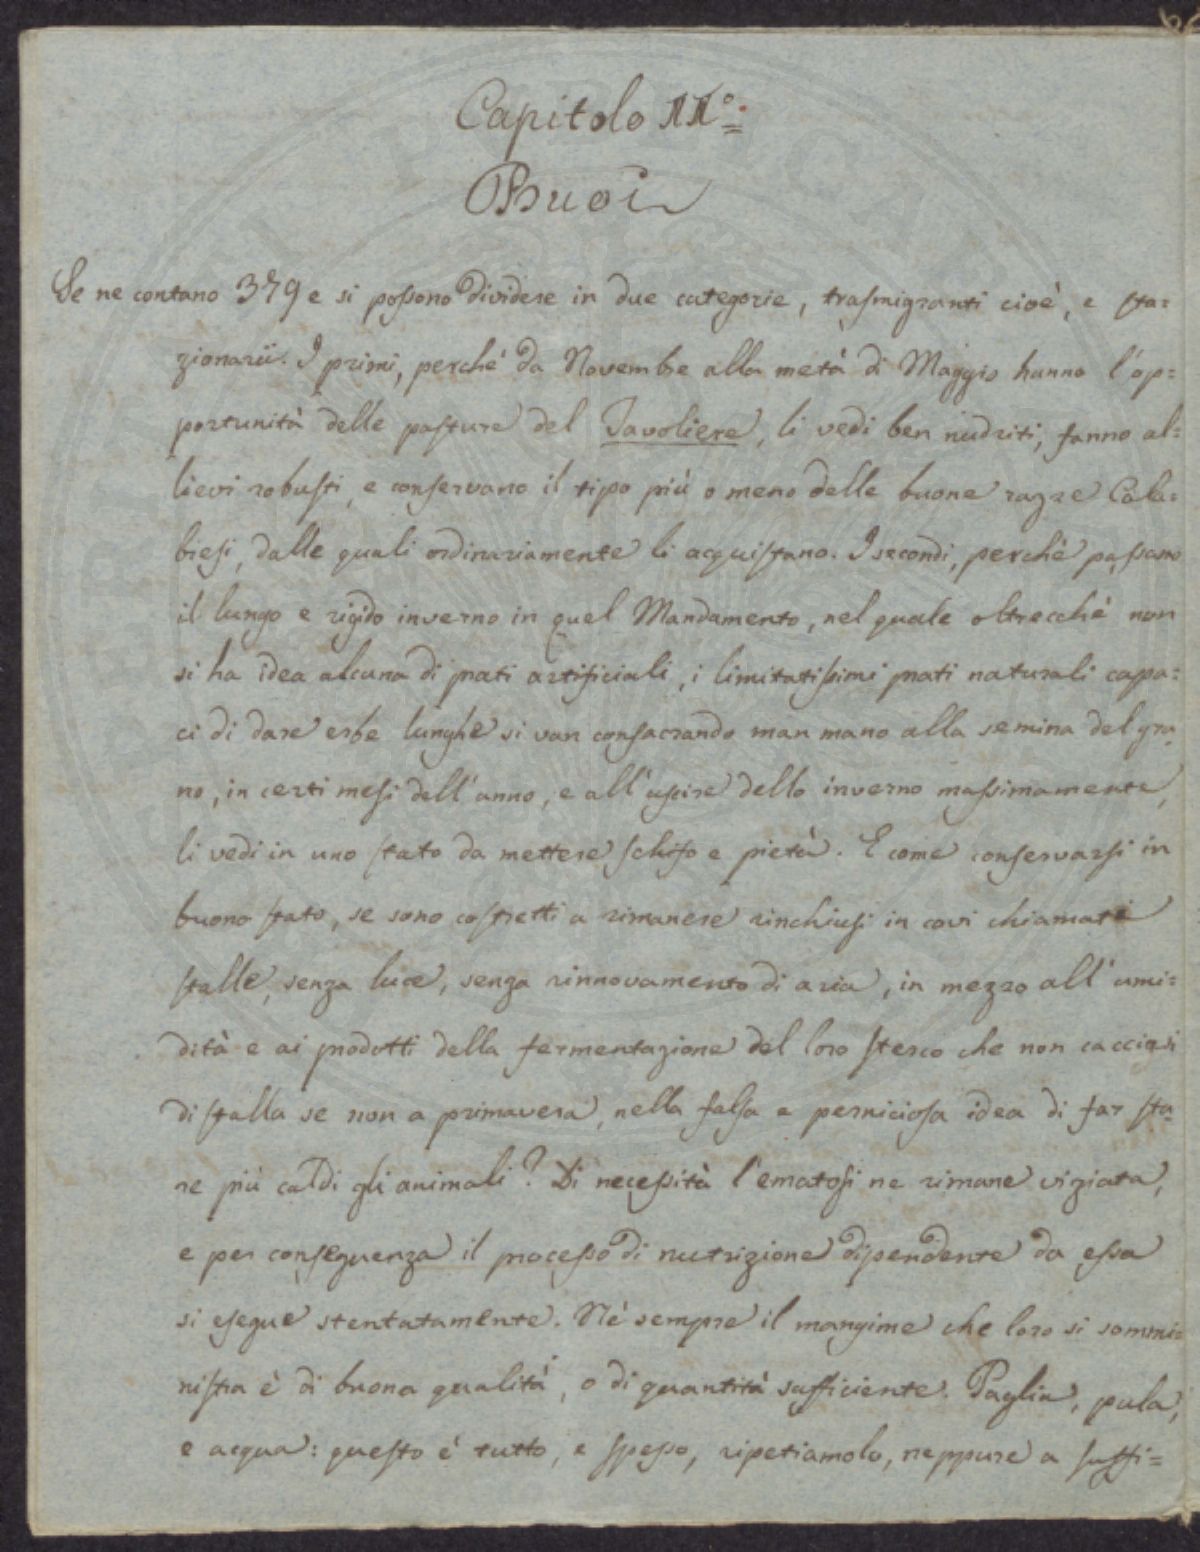 Capitolo II°.
Buoi
Se ne contano 379 e si possono dividere in due categorie, trasmigranti cioè, e sta=
zionarii. I primi, perchè da Novembre alla metà di Maggio hanno l'op=
portunità delle pasture del Tavoliere, li vedi ben nudriti, fanno al=
lievi robusti, e conservano il tipo più o meno delle buone razze Cala=
bresi, dalle quali ordinariamente li acquistano. I secondi, perchè passano
il lungo e rigido inverno in quel Mandamento, nel quale oltrecchè non
si ha idea alcuna di prati artificiali, i limitatissimi prati naturali capa=
ci di dare erbe lunghe si van consacrando man mano alla semina del gra
no, in certi mesi dell'anno, e all'uscire dello inverno massimamente,
li vedi in uno stato da mettere schifo e pietà. E come conservarsi in
buono stato, se sono costretti a rimanere rinchiusi in covi chiamati
stalle, senza luce, senza rinnovamento di aria, in mezzo all'umi=
dità e ai prodotti della fermentazione del loro sterco che non cacciasi
di stalla se non a primavera, nella falsa e perniciosa idea di far sta=
re più caldi gli animali? Di necessità l'ematosi ne rimane viziata,
e per conseguenza il processo di nutrizione dipendente da essa
si esegue stentatamente. Nè sempre il mangime che loro si sommi=
nistra è di buona qualità, o di quantità sufficiente. Paglia, pula,
e acqua: questo è tutto, e spesso, ripetiamolo, neppure a suffi=